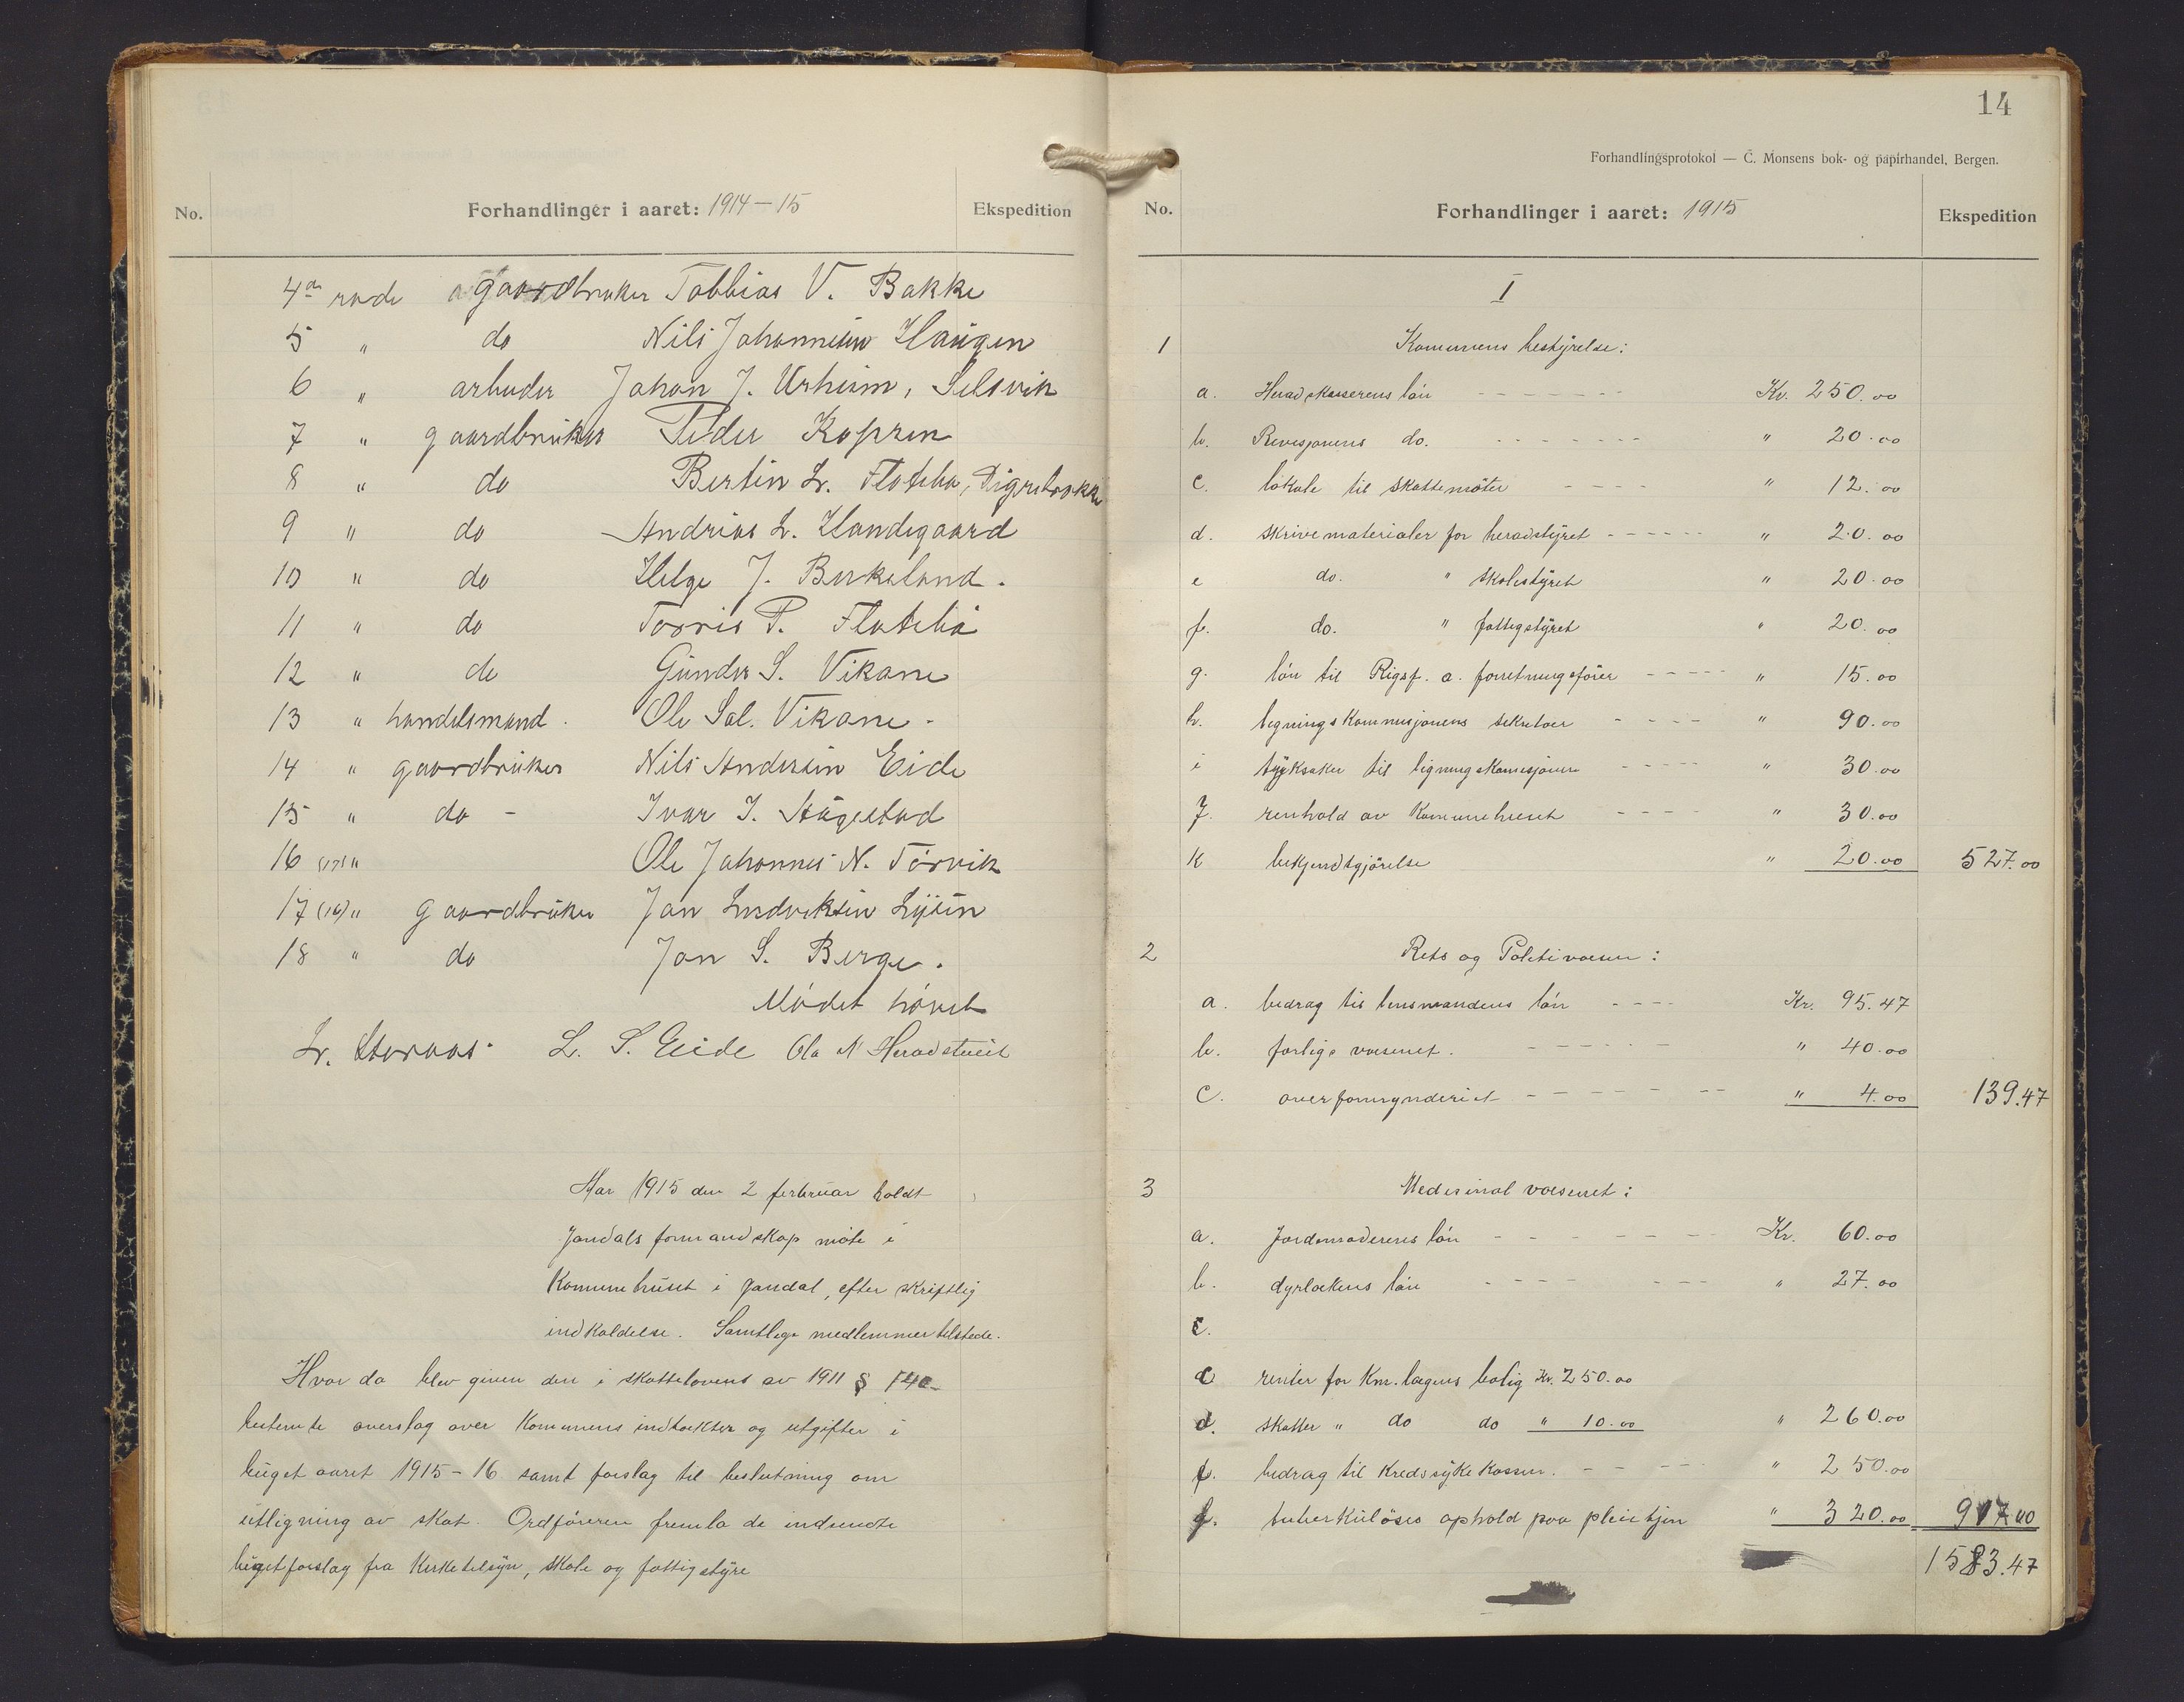 No.
Forhandlinger i aaret: 1914-15
Ekspedition
4de rode gaardbruker Tobbias V. Bakke
5 " do Nils Johannessen Haugen
6 " arbeider Johan J. Urheim, Selsvik
7 " gaardbruker Peder Kopren
8 " do Bertin Lr. Flotebø, Digrebrekke
9 " do Andrias L. Handegaard
10 " do Helge J. Berkeland.
11 " do Torris P. Flatebø
12 " do Gunder S. Vikane
13 " handelsmand. Ole Sal. Vikane.
14 " gaardbruker Nils Andersen Eide
15 " do - Ivar I. Haugestad
16 (17) " Ole Johannes N. Törvik
17 (16) " gaardbruker Jon Ludviksen Lysen
18 " do Jon S. Berge.
Mödet hövet
Lr. Storaas. L. S. Eide Ola N Heradstveit
Aar 1915 den 2 februar holdt
Jondals formandskap möte i
Kommunehuset i Jondal, efter skriftlig
indkaldelse. Samtlige medlemmer tilstede.
Hvor da blev given den i skattelovens av 1911 §
bestemte overslag over Kommunens indtækter og utgifter i
buget aaret 1915-16 samt forslag til beslutning om
utligning av skat. Ordföreren fremla de indsendte
bugetforslag fra Kirketilsyn, skole og fattigstyre
14
Forhandlingsprotokol — C. Monsens bok- og papirhandel, Bergen.
No.
Forhandlinger i aaret: 1915
Ekspedition
I
1 Kommunens bestyrelse:
a. Heradskasserens lön Kr. 250.00
b. Revisjonens do. " 20.00
c. lokale til skattemöter " 12.00
d. skrivematerialer for heradstyret " 20.00
e do. " skolestyret " 20.00
f. do. " fattigstyret " 20.00
g. lön til Rigsf. a. forretningsförer " 15.00
h. ligningskommisjonens sekretær " 90.00
i tryksaker til ligningskomisjonen " 30.00
j. renhold av Kommunehuset " 30.00
k bekjendtgjörelse " 20.00 527.00
2 Rets og Politivæsen:
a. bedrag til lensmandens lön Kr. 95.47
b. forligsvæsenet. " 40.00
c. overformynderiet " 4.00 139.47
3 Medesinal væsenet:
a. Jordemoderens lön Kr. 60.00
b. dyrlækens lön " 27.00
c.
c renter for Km. lægens bolig Kr. 250.00
d. skatter " do do " 10.00 " 260.00
f. bedrag til Kredssykekassen. " 250.00
f. tuberkulöses ophold paa pleiehjem " 320.00 917.00
1583.47